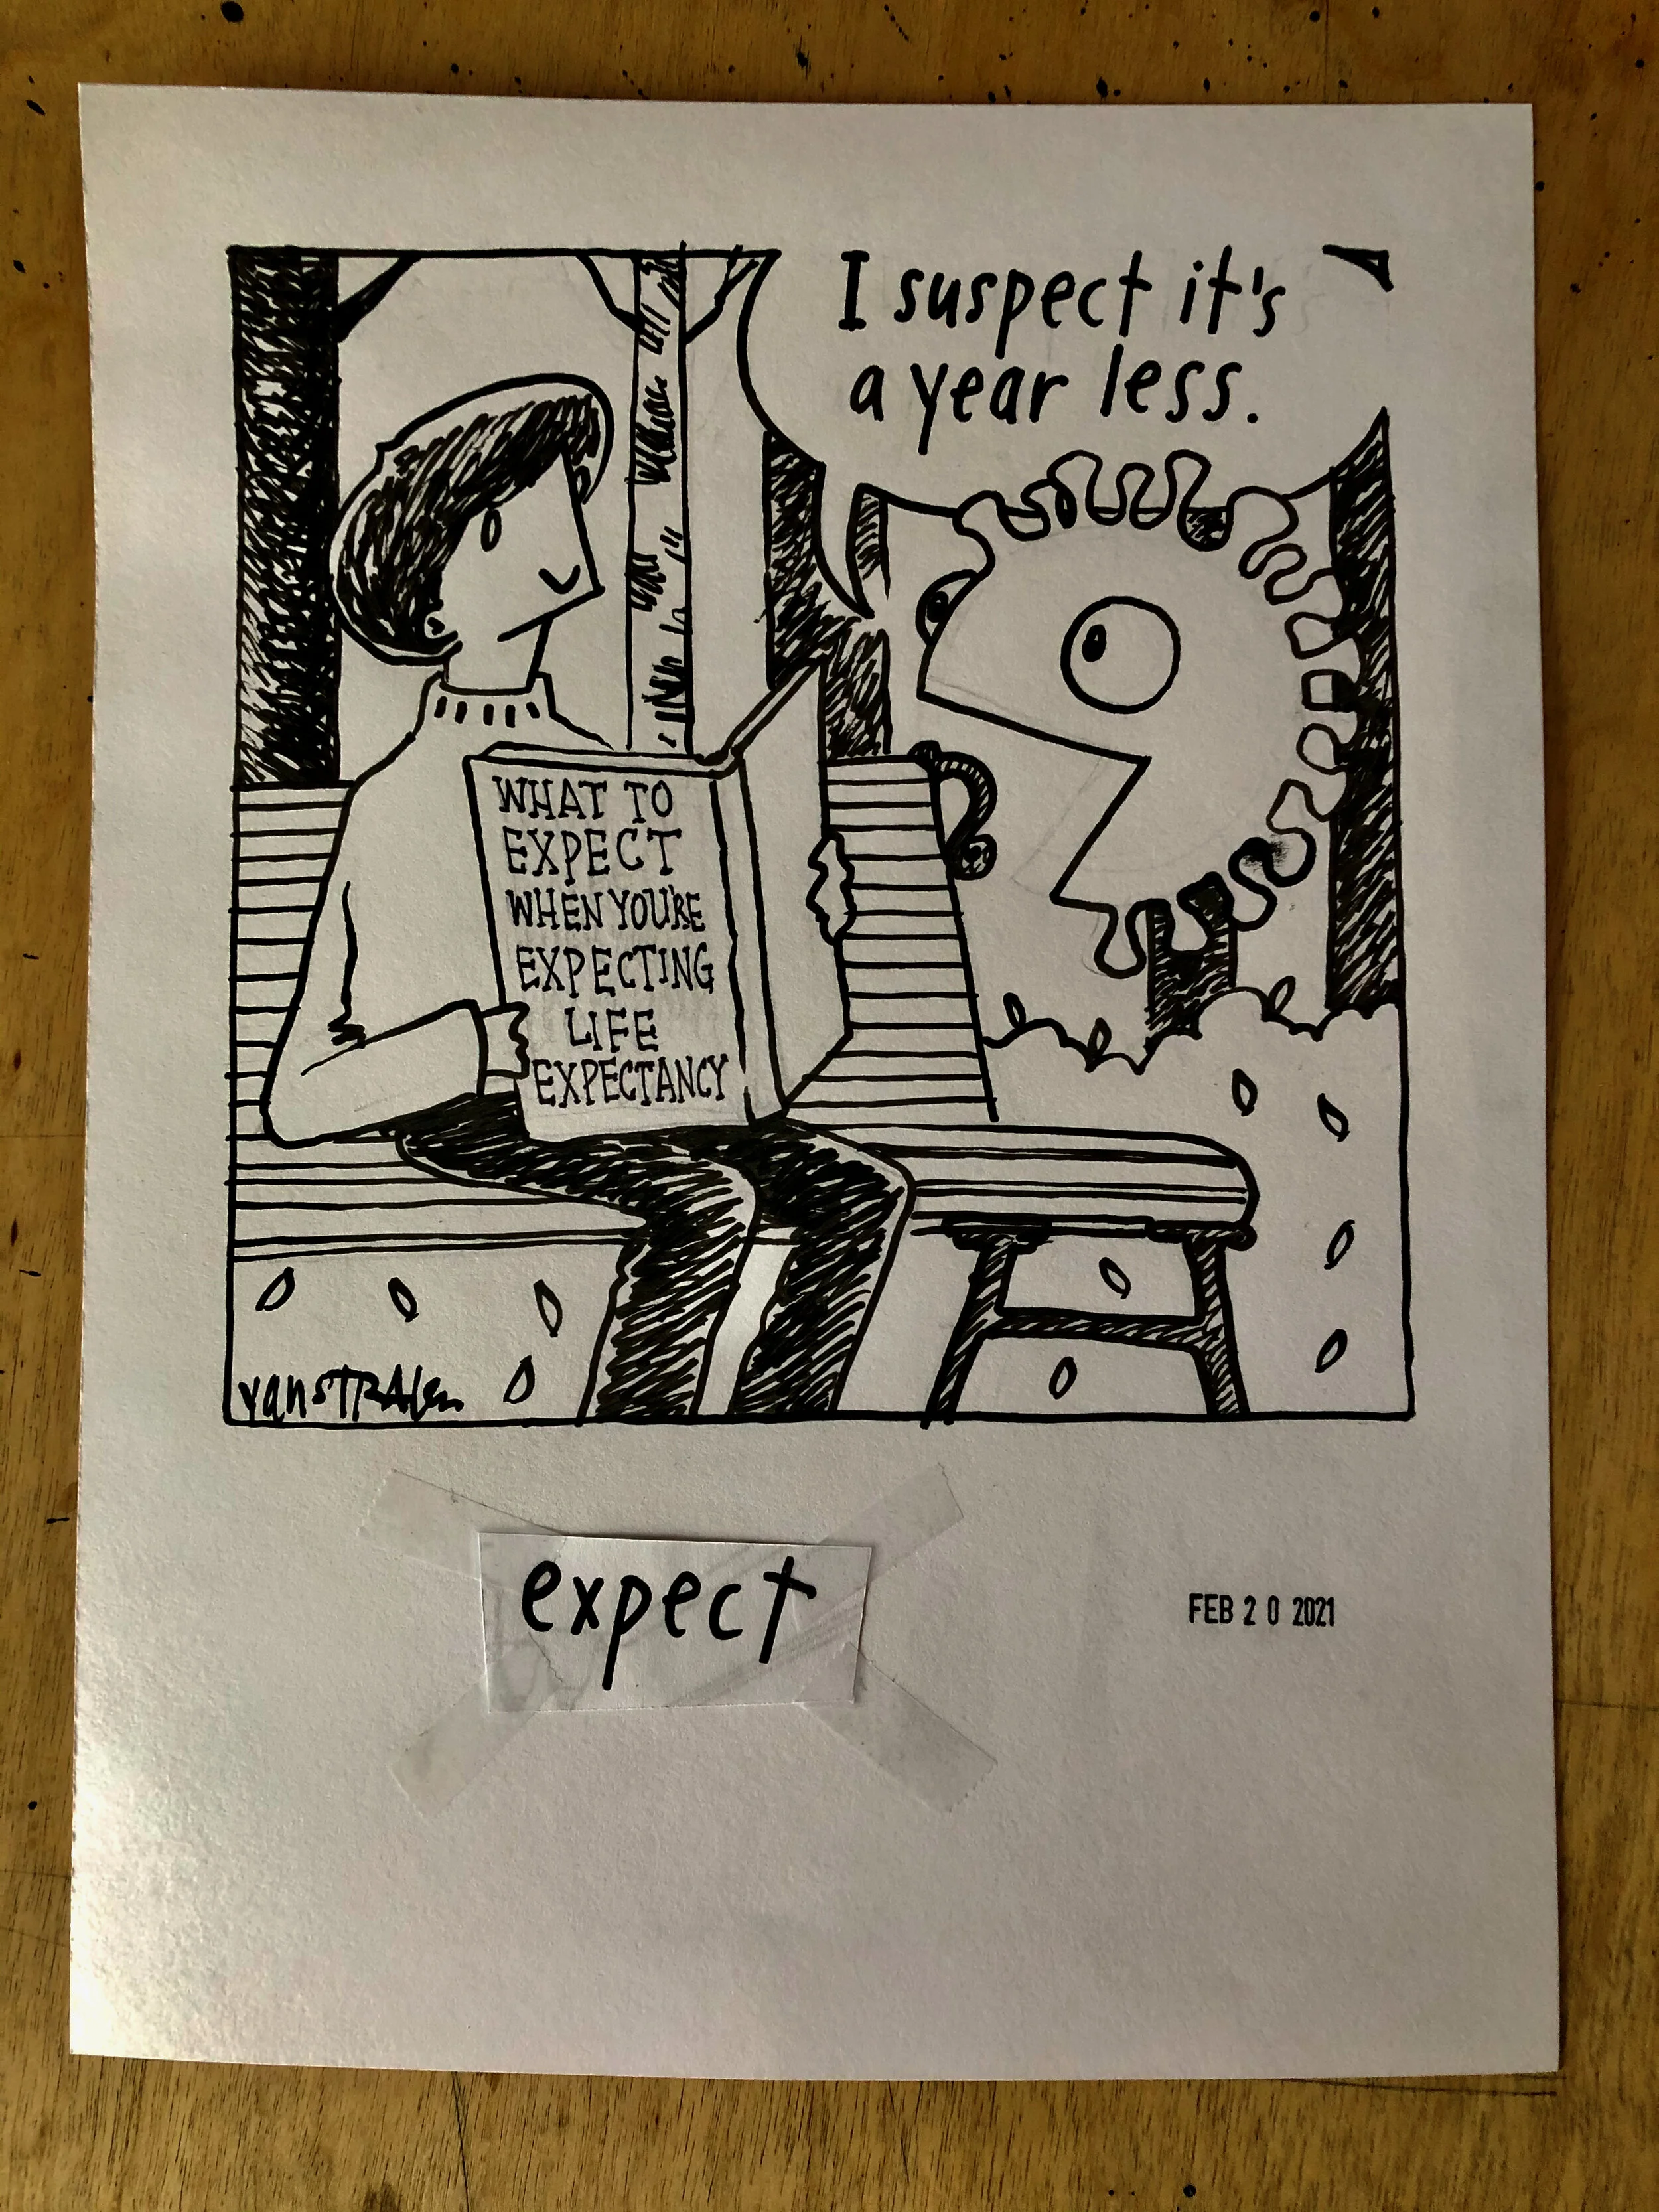 I suspect it's
a year less.
WHAT TO
EXPECT
WHEN YOU'RE
EXPECTING
LIFE
EXPECTANCY
vanSTRALen
expect
FEB 20 2021